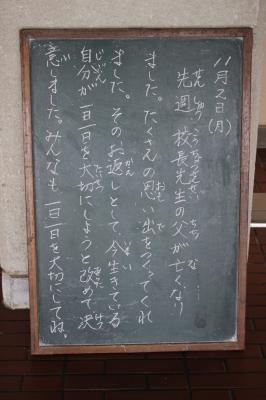 11月2日(月)
先週、校長先生の父が亡くなり
ました。たくさんの思い出をつくってくれ
ました。そのお返しとして、今生きている
自分が一日一日を大切にしようと改めて決
意しました。みんなも一日一日を大切にしてね。